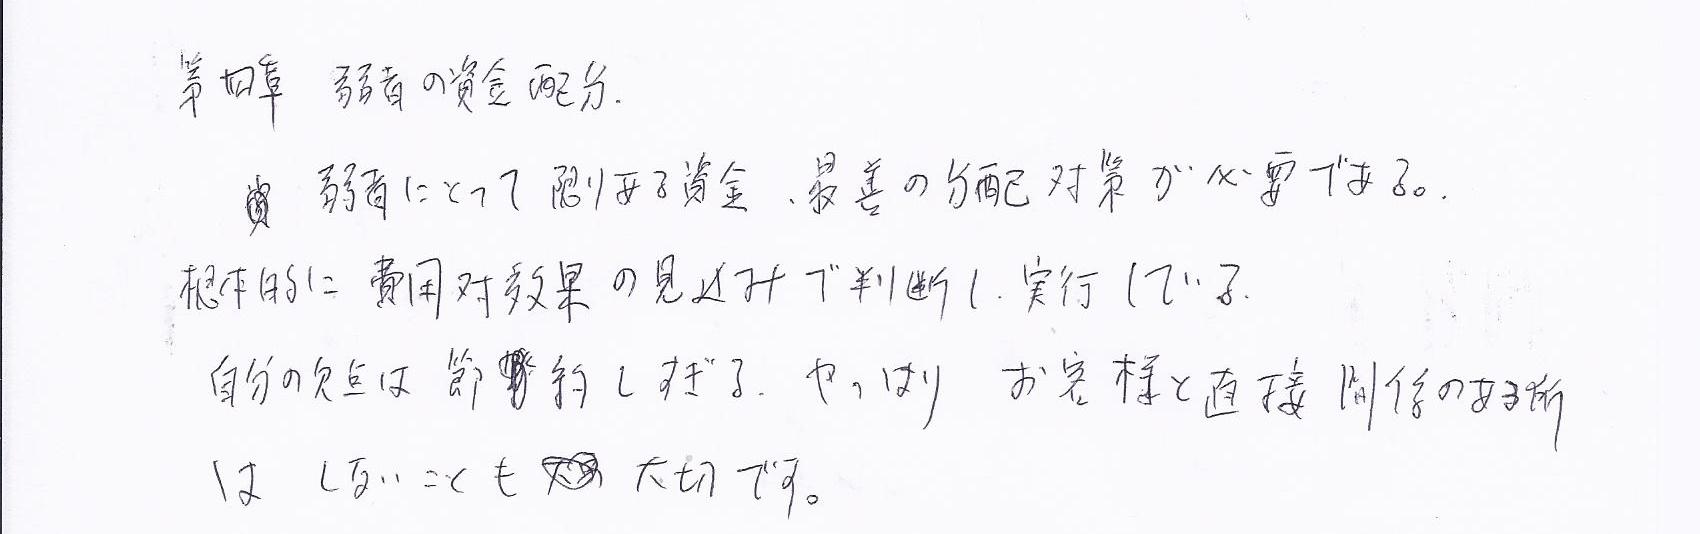 第四章 弱者の資金配分.
弱者にとって限りある資金、最善の分配対策が必要である。
根本的に費用対効果の見込みで判断し.実行している.
自分の欠点は節約しすぎる.やっぱり お客様と直接関係のある所
は しないことも 大切です。